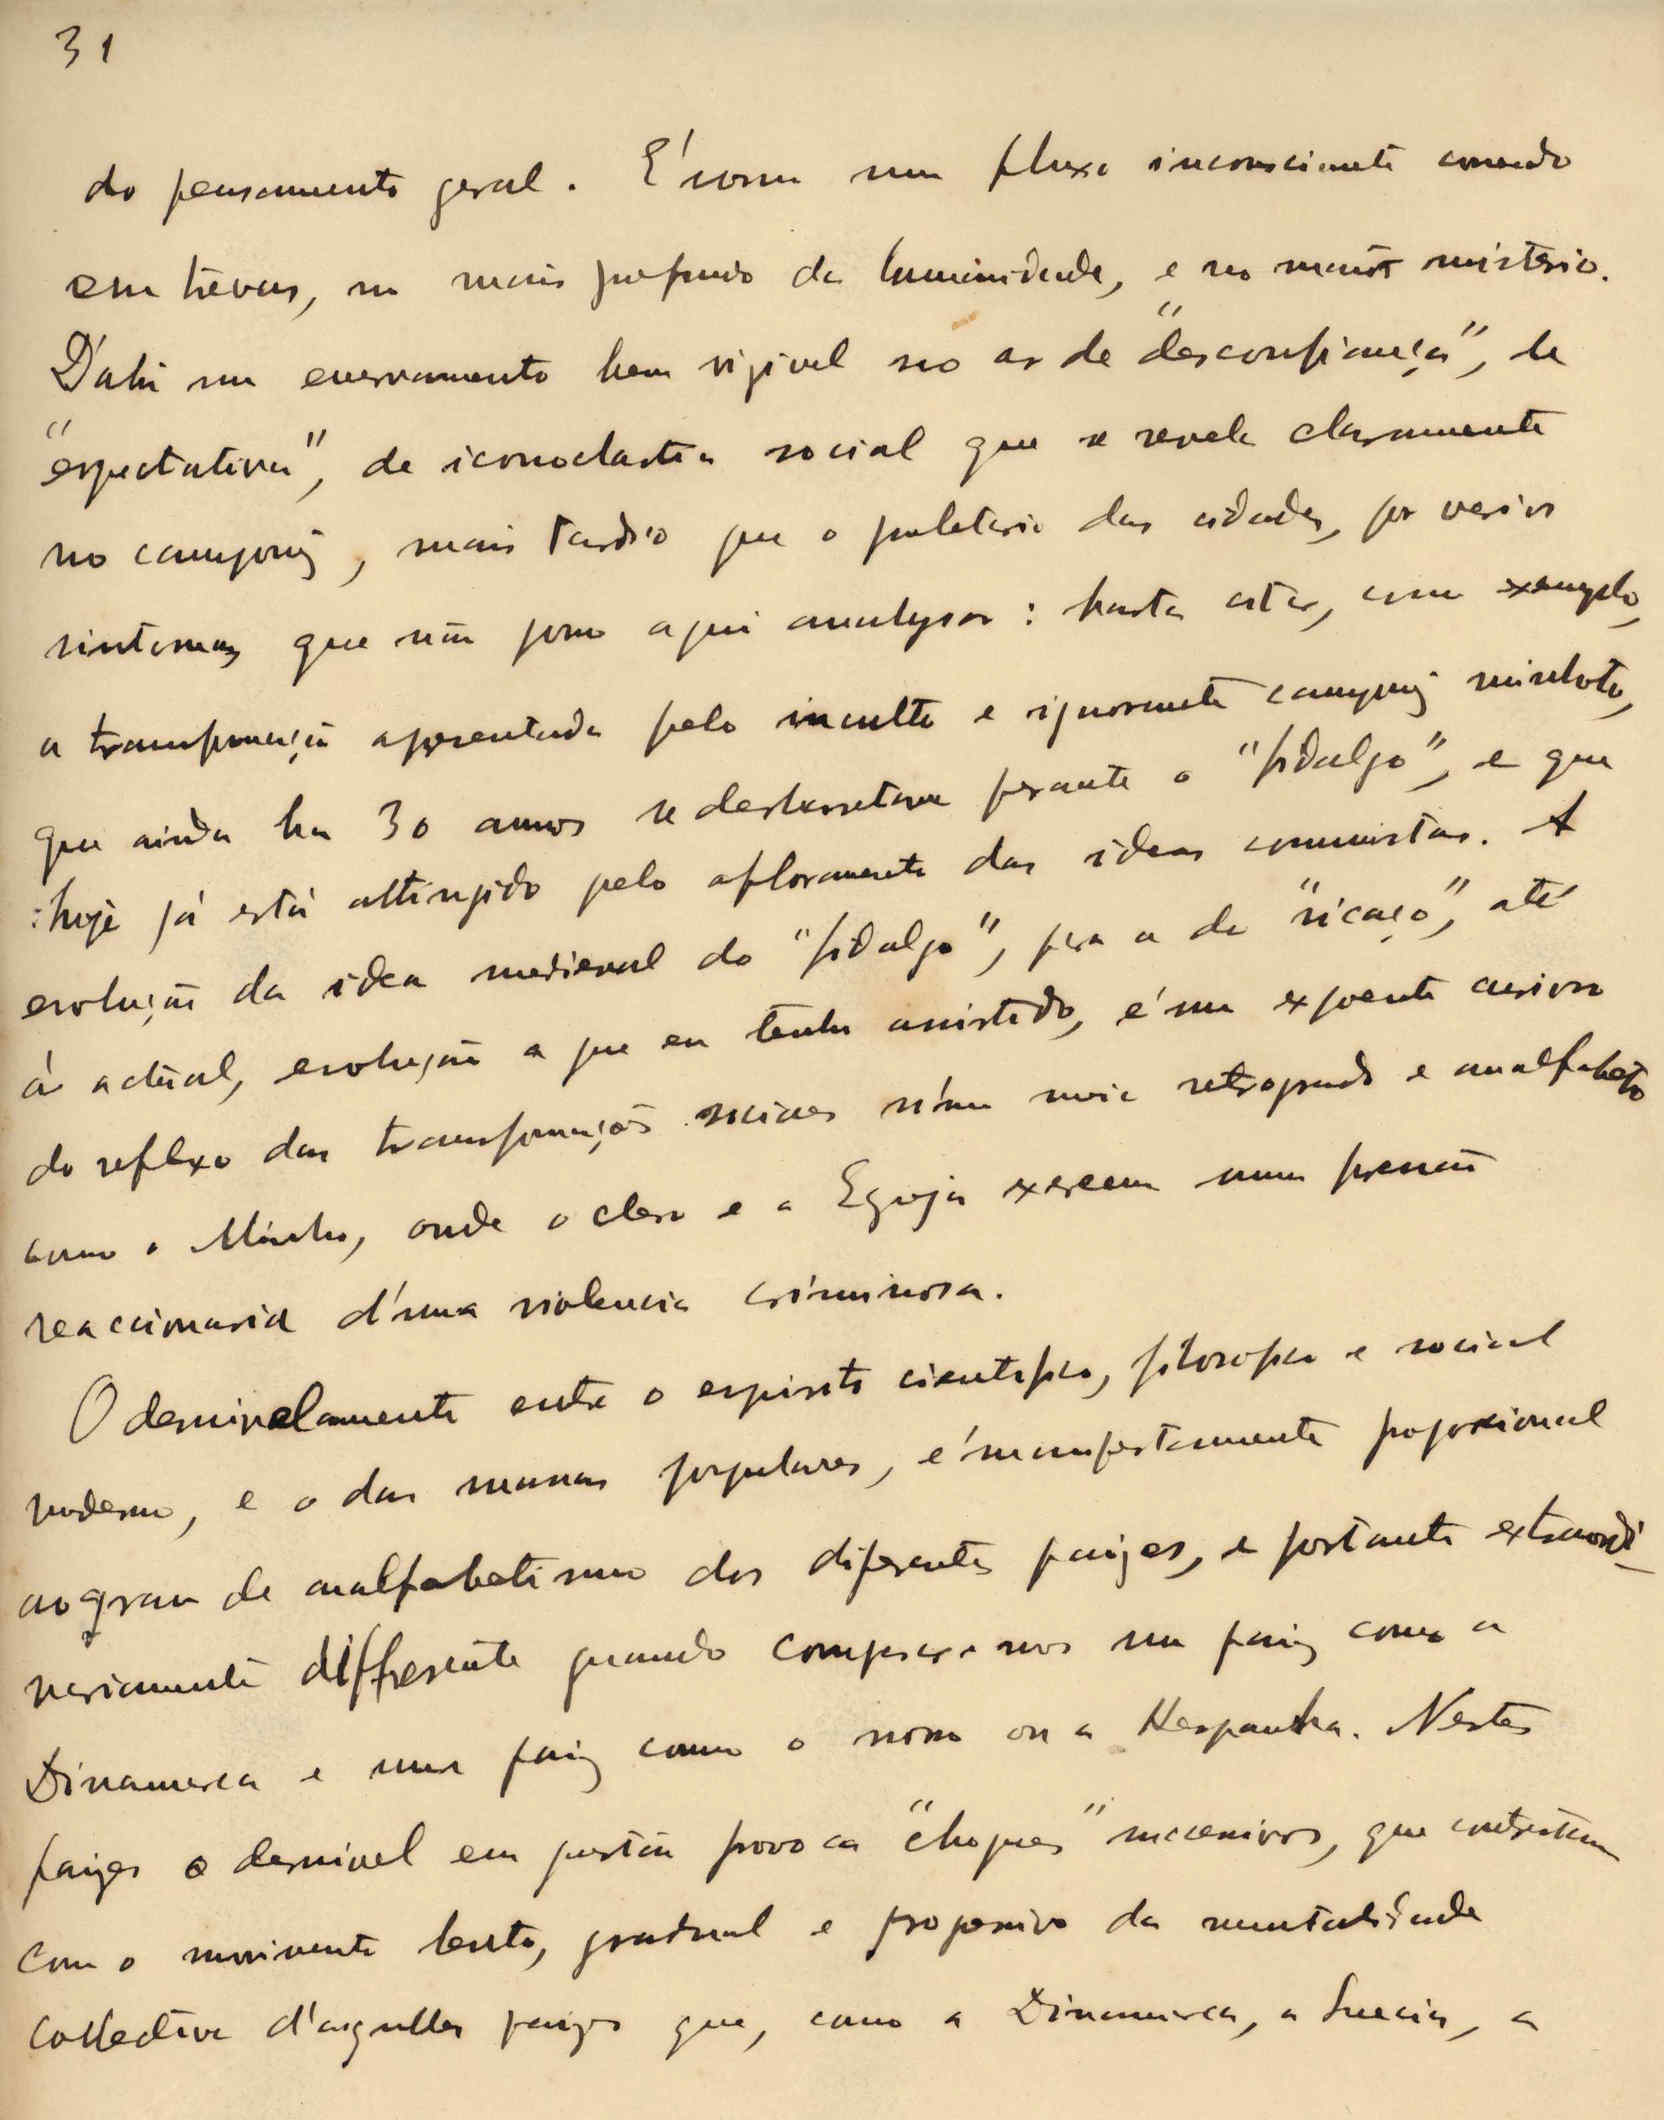 31
do pensamento geral. É como um fluxo inconsciente correndo
em trevas, no mais profundo da humanidade, e no maior misterio.
D'ahi um enervamento bem visivel no ar de "desconfiança", de
"espectativa", de iconoclastia social que se revela claramente
no camponez, mais tardio que o proletario das cidades, por varios
sintomas que não posso aqui analysar: basta citar, como exemplo,
a transformação apresentada pelo inculto e ignorante camponez minhoto,
que ainda ha 30 annos se desbarretava perante o "fidalgo", e que
hoje já está attingido pelo afloramento das ideas comunistas. A
evolução da idea medieval do "fidalgo", pera a de "ricaço", até
á actual, evolução a que eu tenho assistido, é um expoente curioso
do reflexo das transformações sociaes n'um meio retrogrado e analfabeto
como o Minho, onde o clero e a Egreja exercem uma pressão
reaccionaria d'uma violencia criminosa.
O desnivelamento entre o espirito cientifico, filosofico e social
moderno, e o das massas populares, é manifestamente proporcional
ao grau de analfabetismo dos diferentes paizes, e portanto extraordi-
nariamente differente quando comparamos um paiz como a
Dinamarca e um paiz como o nosso ou a Hespanha. Nestes
paizes o desnivel em questão provoca "choques" sucessivos, que contrastam
com o movimento lento, gradual e progressivo da mentalidade
collectiva d'aquelles paizes que, como a Dinamarca, a Suecia, a